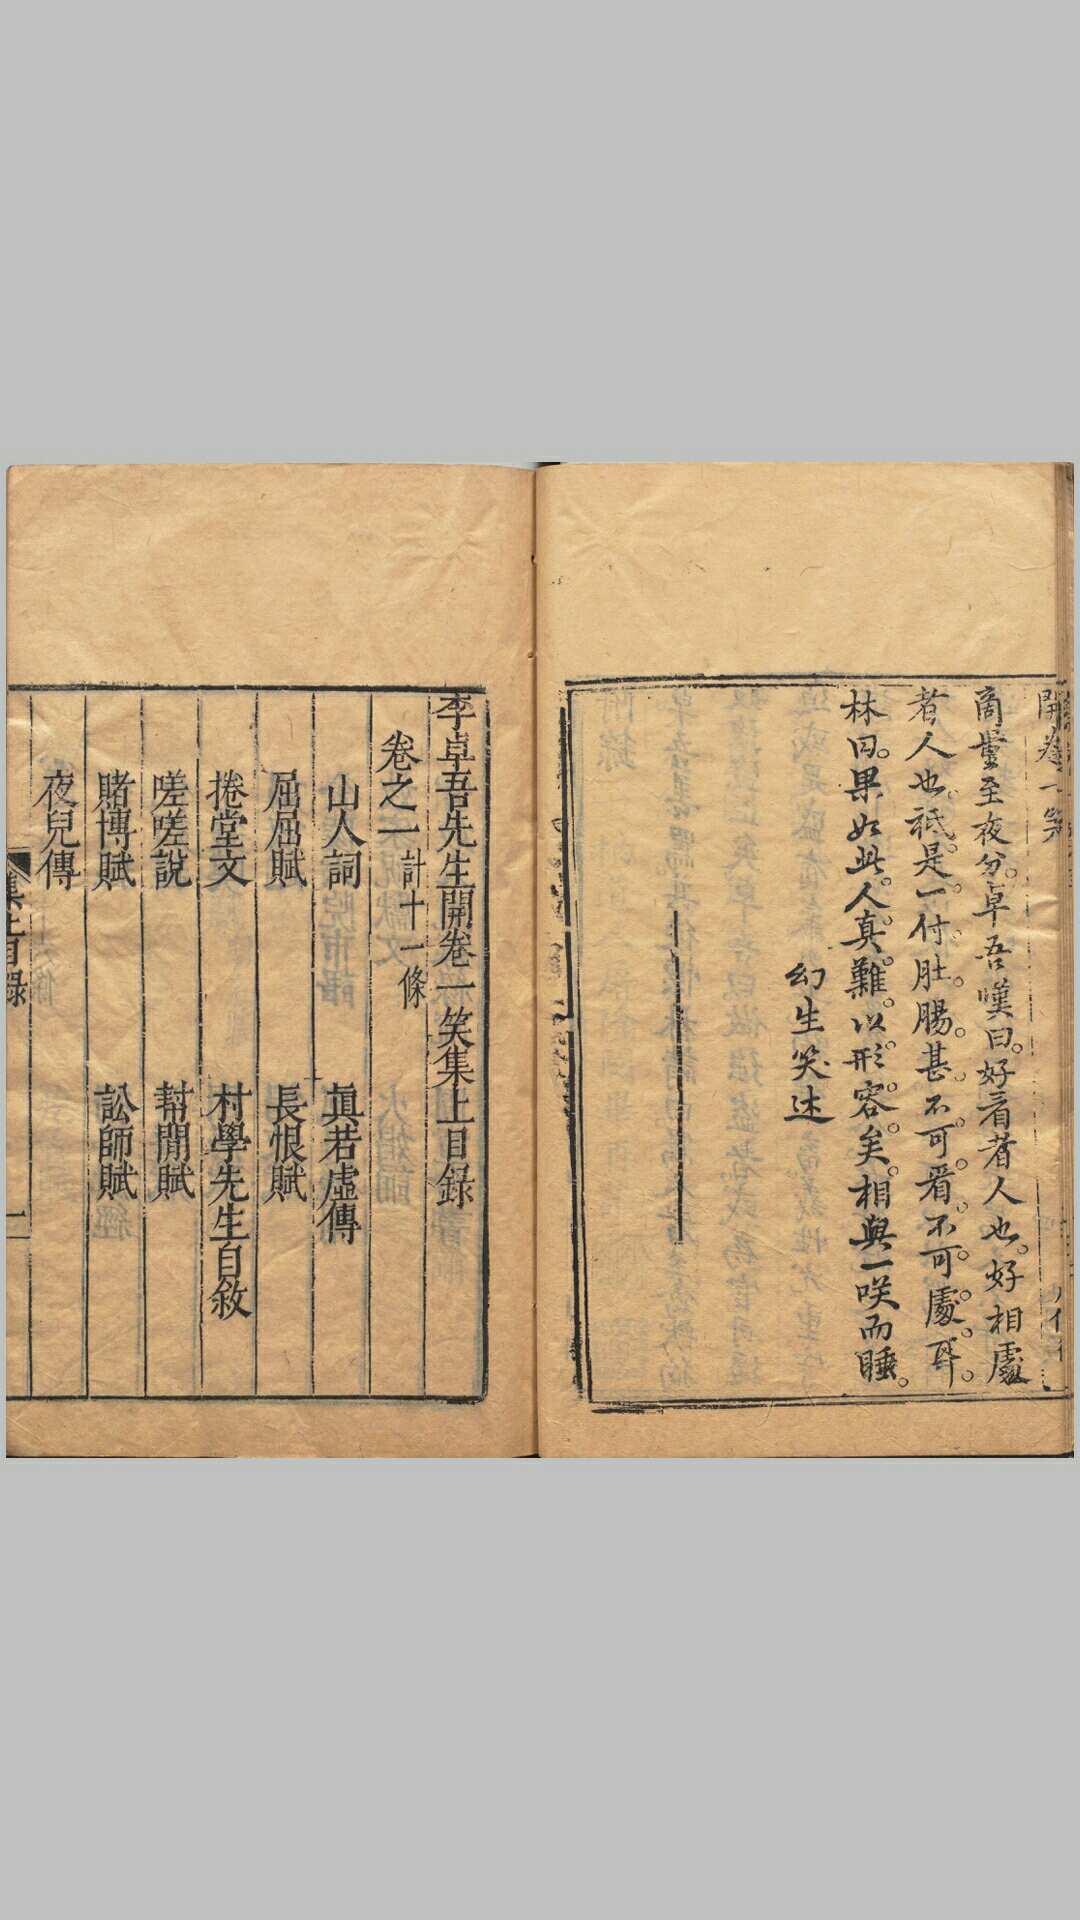 開卷一笑
商量至夜分。卓吾嘆曰。好看者人也。好相處
者人也。祇是一付肚腸。甚不可看。不可處耳。
林曰。果如此。人真難以形容矣。相與一咲而睡。
幻生笑述
李卓吾先生開卷一笑集上目錄
卷之一 計十一條
山人詞 眞若虛傳
屈屈賦 長恨賦
捲堂文 村學先生自敘
嗟嗟說 幇閒賦
賭博賦 訟師賦
夜兒傳
集上目錄 一